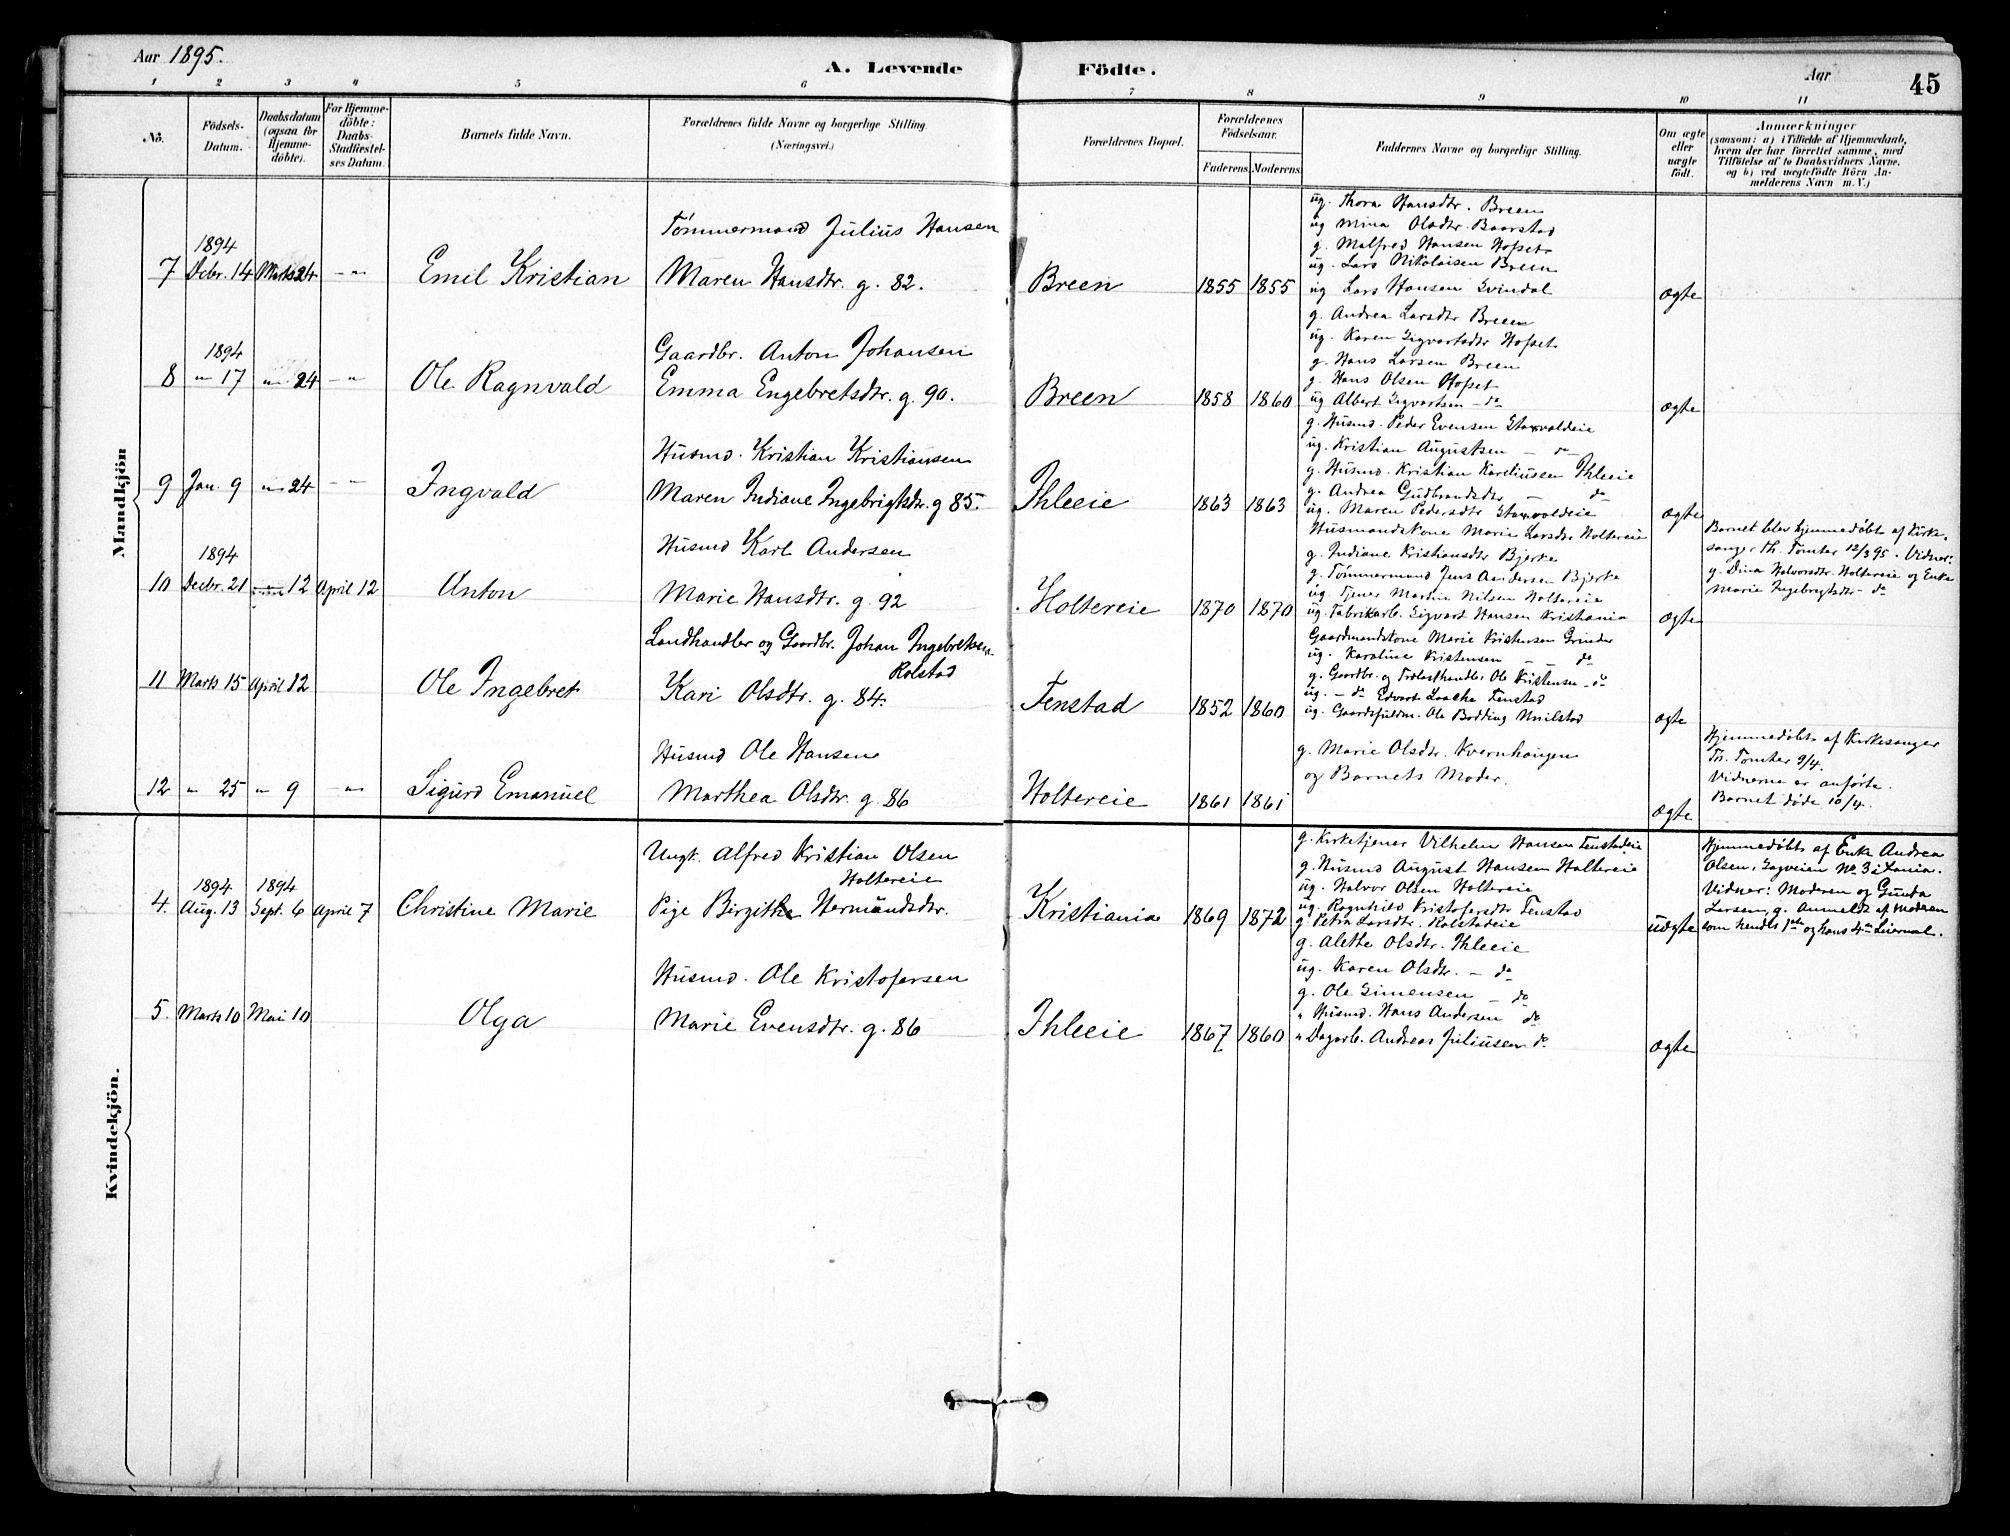 Aar 1895.
A. Levende Födte.
Aar
45
1 2 3 4 5 6 7 8 9 10 11
No.
Födsels-Datum.
Daabsdatum (ogsaa for Hjemme-döbte).
For Hjemme-döbte: Daabs-Stadfestel-ses Datum.
Barnets fulde Navn.
Forældrenes fulde Navne og borgerlige Stilling.
(Næringsvei.)
Forældrenes Bopæl.
Forældrenes Födselsaar.
Faderens. Moderens.
Faddernes Navne og borgerlige Stilling.
Om ægte eller uægte födt.
Anmærkninger
(saasom: a) i Tilfælde af Hjemmedaab,
hvem der har forrettet samme, med
Tilföielse af to Daabsvidners Navne,
og b) ved uægtefödte Börn An-
melderens Navn m. V.)
Mandkjön
7 1894 Decbr. 14 Marts 24 -"- Emil Kristian
Tömmermand Julius Hansen
Maren Hansdtr. g. 82.
Breen 1855 1855
ug. Thora Hansdtr. Breen
ug Mina Olsdtr. Baarstad
g. Malfred Hansen Hofset
ug. Lars Nikolaisen Breen
ug Lars Hansen Svindal
ægte
8 1894 -"- 17 -"- 24 -"- Ole Ragnvald
Gaardbr. Anton Johansen
Emma Engebretsdtr. g. 90.
Breen 1858 1860
g. Andrea Larsdtr Breen
ug. Karen Sigvartsdtr Hofset
g. Hans Larsen Breen
g. Hans Olsen Hofset
ug Albert Sigvartsen - do
ægte
9 Jan. 9 -"- 24 -"- Ingvald
Husmd. Kristian Kristiansen
Maren Indiane Ingebrigtsdtr. g 85.
Ihleeie 1863 1863
g. Husmd. Peder Evensen
ug. Kristian Augustsen - do
g. Husmd. Kristian Kareliussen Ihleeie
g. Andrea Gudbrandsdtr - do
ug. Maren Pedersdtr
ægte
10 1894 Decbr. 21 12 April 12 Anton
Husmd Karl Andersen
Marie Hansdtr. g. 92
Holtereie 1870 1870
Husmandskone Marie Larsdtr Holtereie
g. Indiane Kristiansdtr Bjerke
g. Tömmermand Jens Andersen Bjerke
ug. Tjener Martin Nilsen Holtereie
ug. Fabrikarb. Sigvart Hansen Kristiania
ægte
Barnet blev hjemmedöbt af Kirke-
sanger Th. Tomter 12/3 95. Vidner:
g. Dina Halvorsdtr. Holtereie og Enke
Marie Ingebrigtsdtr - do
11 Marts 15 April 12 Ole Ingebret
Landhandler og Gaardbr. Johan Ingebretsen
Rolstad
Kari Olsdtr. g. 84.
Tenstad 1852 1860
Gaardmandskone Marie Kristensen Grinder
ug. Karoline Kristensen - do
g. Gaardbr. og Trælasthandler Ole Kristensen - do
ug. - do Edvart Laache Tenstad
ug. Gaardsfuldm. Ole Bodding
ægte
12 " 25 " 9 -"- Sigurd Emanuel
Husmd Ole Hansen
Marthea Olsdtr. g. 86
Holtereie 1861 1861
g. Marie Olsdtr. Kvernhaugen
og Barnets Moder.
ægte
Hjemmedöbt af Kirkesanger
Th. Tomter 9/4.
Vidnerne er anförte.
Barnet döde 10/4.
Kvindekjön.
4. 1894 Aug. 13 1894 Sept. 6 April 7 Christine Marie
Ungk. Alfred Kristian Olsen
Holtereie
Pige Birgithe Hermandsdtr.
Kristiania 1869 1872
g. Kirketjener Vilhelm Hansen Tenstadeie
g. Husmd August Hansen Holtereie
ug. Halvor Olsen Holtereie
ug. Ragnhild Kristofersdtr Tenstad
g. Petra Larsdtr. Rolstadeie
uægte
Hjemmedöbt af Enke Andrea
Olsen, Sagveien No 3
Vidner: Moderen og Gunda
Larsen, g. Anmeldt af Moderen
som hendes 1ste og hans 4de Leiermal.
5. Marts 10 Mai 10 Olga
Husmd. Ole Kristofersen
Marie Evensdtr. g. 86
Ihleeie 1867 1860
g. Alette Olsdtr. Ihleeie
ug. Karen Olsdtr. - do
g. Ole Simensen - do
" Husmd. Hans Andersen do
" Dagarb. Andreas Juliusen do
ægte